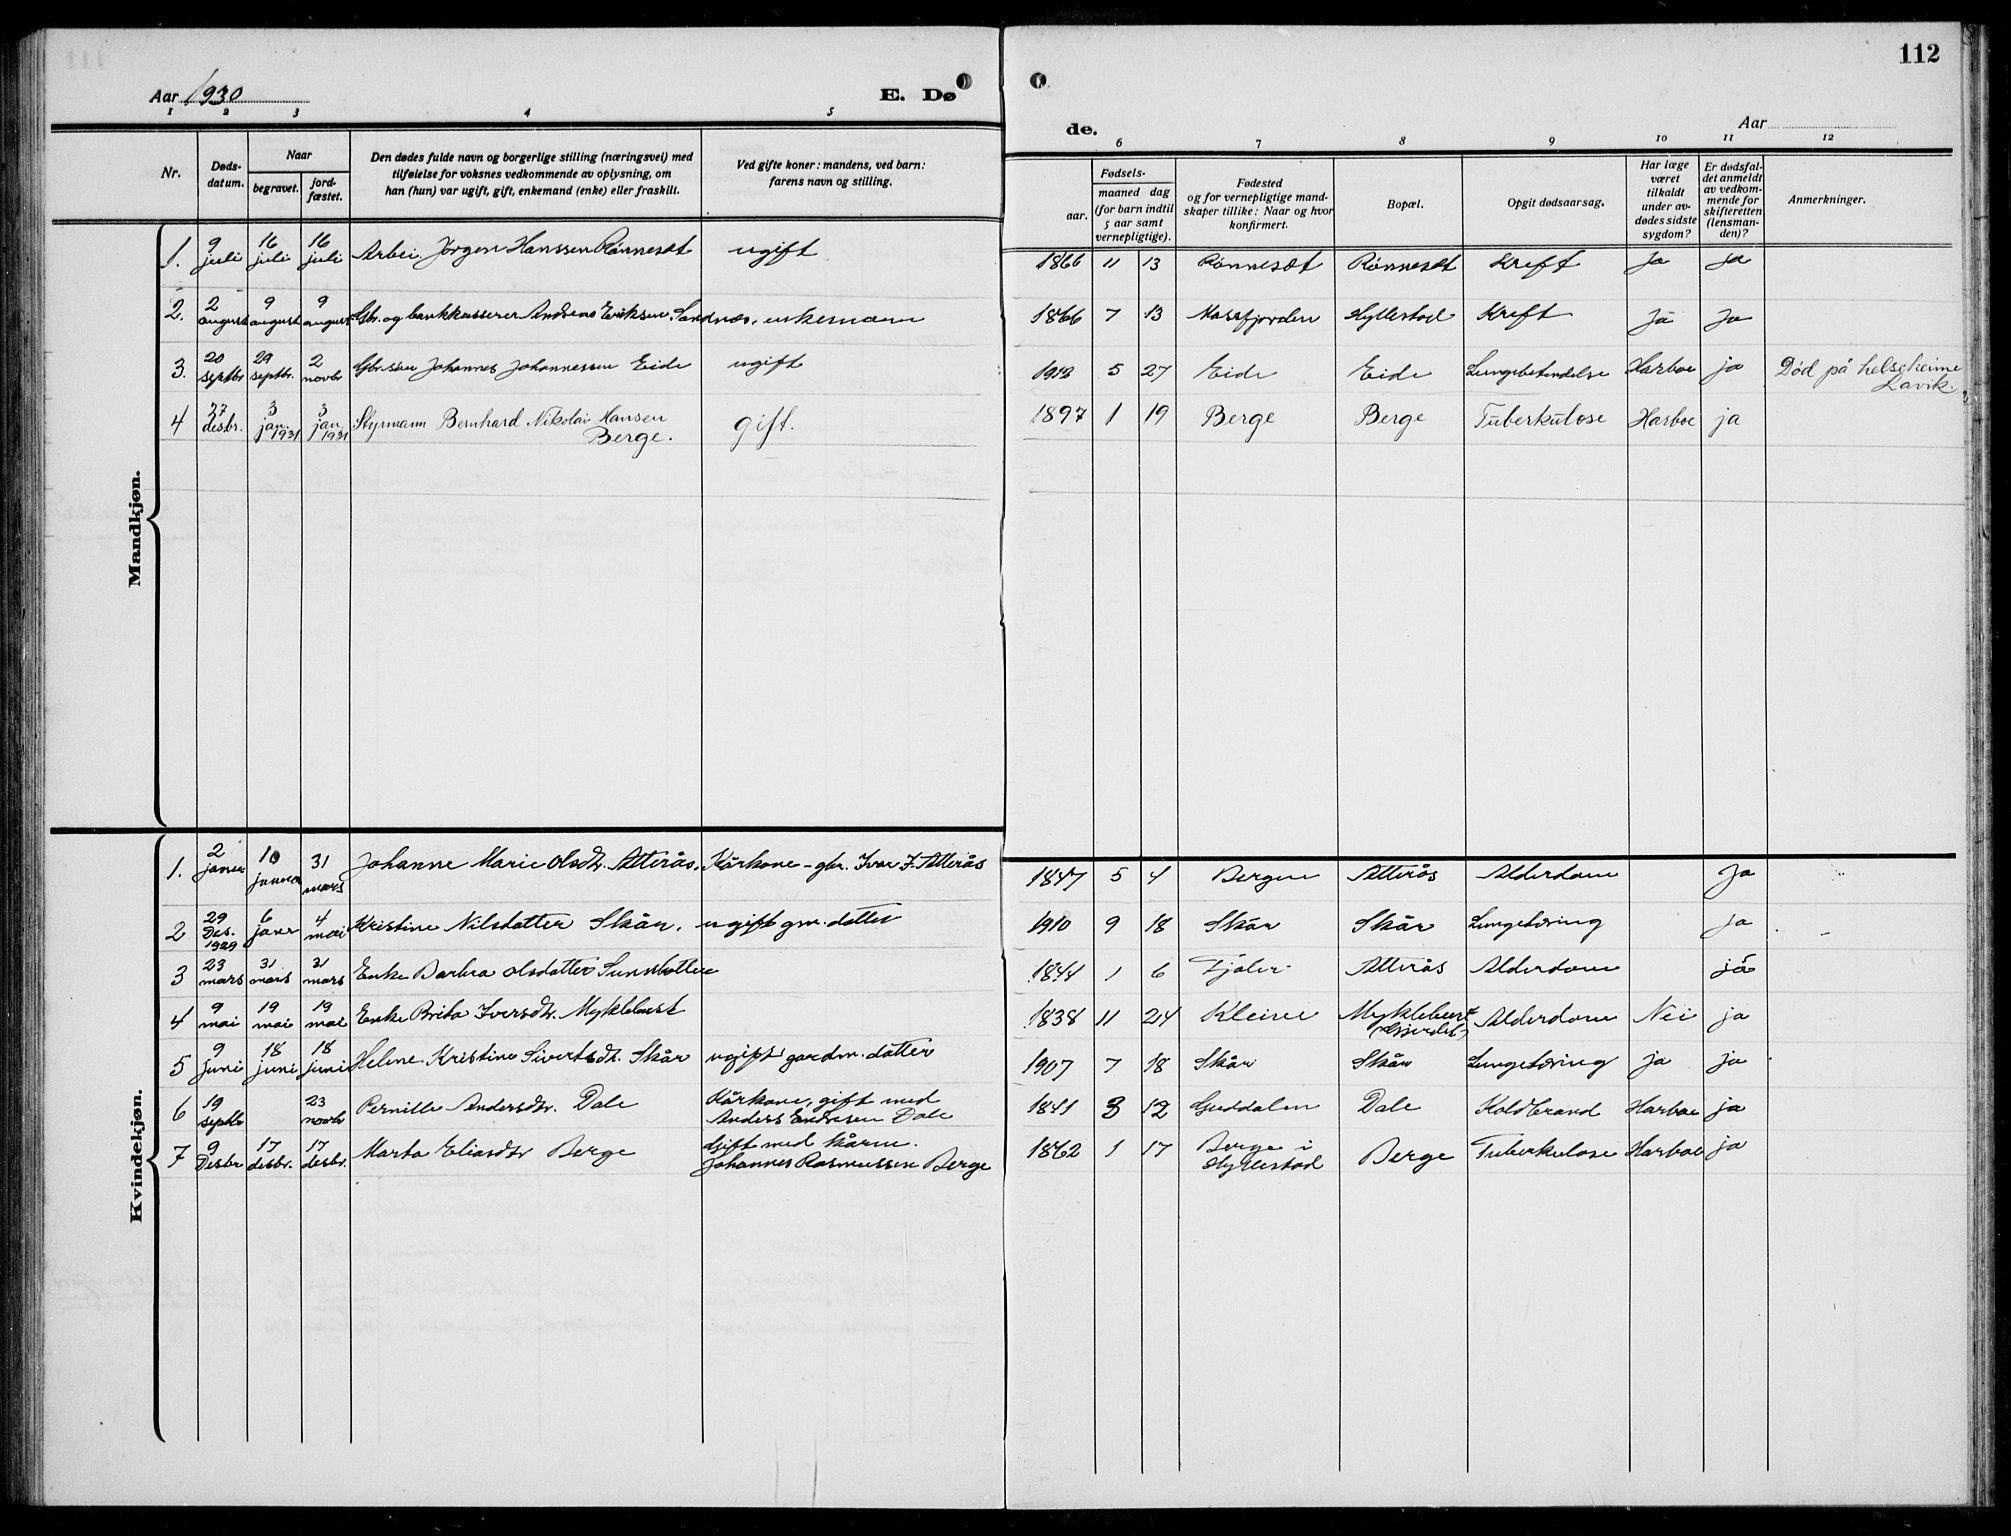 112
Aar 1930
E. Dø
de.
Aar
1 2 3 4 5
6 7 8 9 10 11 12
Nr.
Døds-
datum.
Naar
begravet.
jord-
fæstet.
Den dødes fulde navn og borgerlige stilling (næringsvei) med
tilføielse for voksnes vedkommende av oplysning, om
han (hun) var ugift, gift, enkemand (enke) eller fraskilt.
Ved gifte koner: mandens, ved barn:
farens navn og stilling.
Fødsels-
aar.
maaned dag
(for barn indtil
5 aar samt
vernepligtige).
Fødested
og for vernepligtige mand-
skaper tillike: Naar og hvor
konfirmert.
Bopæl.
Opgit dødsaarsag.
Har læge
været
tilkaldt
under av-
dødes sidste
sygdom?
Er dødsfal-
det anmeldt
av vedkom-
mende for
skifteretten
(lensman-
den)?
Anmerkninger.
Mandkjøn.
1. 9 juli 16 juli 16 juli Arbei. Jørgen Hanssen Rønneset ugift 1866 11 13 Rønneset Rønneset Kreft Ja Ja
2. 2 august 9 august 9 august Gbr. og bankkasserer Andreas Eriksen Sandnæs, enkemann 1866 7 13 Masfjorden Hyllestad Kreft Ja Ja
3. 20 septbr 29 septbr. 2 novbr Gbr.søn Johannes Johannessen Eide ugift 1912 5 27 Eide Eide Lungebetendelse Harboe ja Död på helseheime
Lavik.
4 27 desbr. 3 jan. 1931 3 jan 1931 Styrmann Bernhard Nikolai Hansen
Berge. gift. 1897 1 19 Berge Berge Tuberkulose Harboe ja
Kvindekjøn.
1. 2 januar 10 januar 31 mars Johanne Marie Olsdtr. Atterås. Kårkone - gbr. Ivar J. Atterås 1847 5 4 Bergen Atterås Alderdom Ja
2 29 Des. 1929 6 januar 4 mai Kristine Nilsdatter Skår. ugift gm. datter 1910 9 18 Skår Skår Lungetæring Ja
3 23 mars 31 mars 31 mars Enke Barbra Olsdatter Sunnbotten 1844 1 6 Fjaler Atterås Alderdom já
4 9 mai 19 mai 19 mai Enke Brita Iversdtr. Myklebust 1838 11 24 Kleive Myklebust
(Gjerdet) Alderdom Nei ja
5 9 Juni 18 juni 18 juni Helene Kristine Sivertsdtr. Skår ugift gardm. datter 1907 7 18 Skår Skår Lungetæring ja ja
6 19 septbr 23 novbr Pernille Andersdtr. Dale Kårkone, gift med
Anders Endresen Dale 1841 3 12 Guddalen Dale Koldbrand Harboe ja
7 9 Desbr 17 desbr. 17 desbr. Marta Eliasdtr Berge Gift med kårm.
Johannes Rasmussen Berge 1862 1 17 Berge i
Hyllestad Berge Tuberkulose Harboe ja